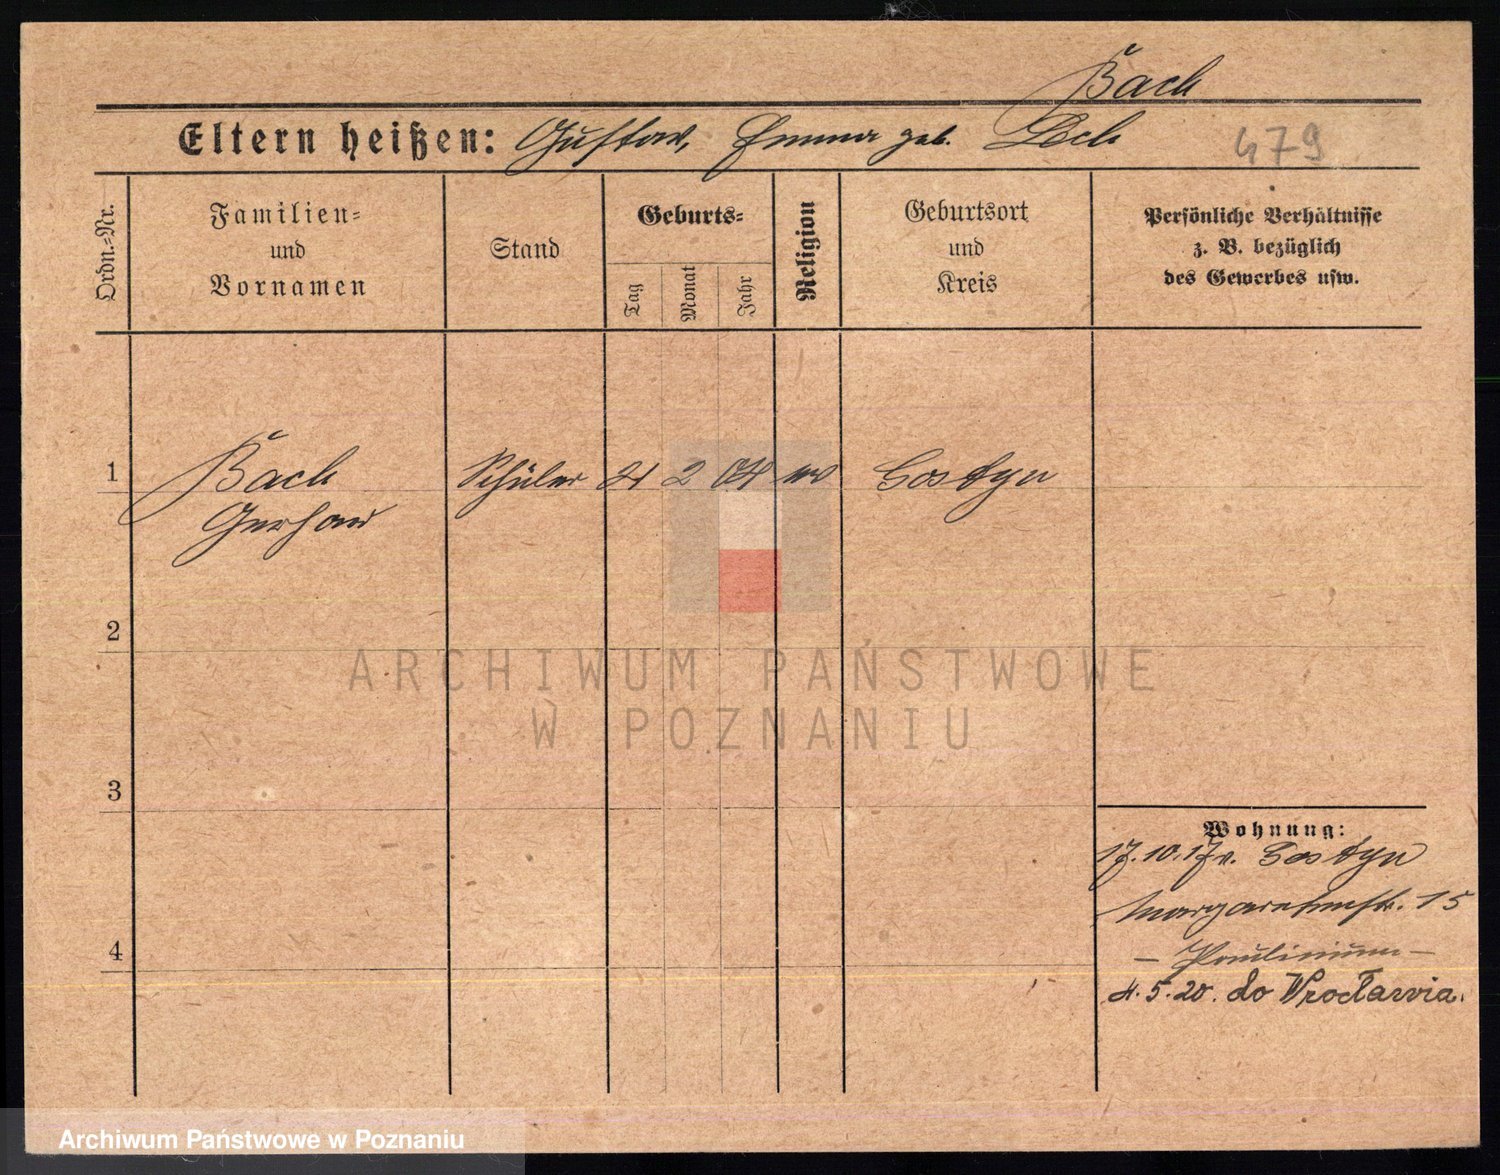 Bach
Eltern heißen: Gustav, Emma geb.
479
Ordn.-Nr.
Familien-
und
Vornamen
Stand
Geburts-
Tag
Monat
Jahr
Religion
Geburtsort
und
Kreis
Persönliche Verhältnisse
z. B. bezüglich
des Gewerbes usw.
1
Bach
Schüler
2
04
ev
Gostyn
Gerhard
2
3
4
Wohnung:
17.10.17 v. Gostyn
Margaretenstr. 15
- Paulinum -
4.5.20. do Wrocławia.
ARCHIWUM PAŃSTWOWE
W POZNANIU
Archiwum Państwowe w Poznaniu